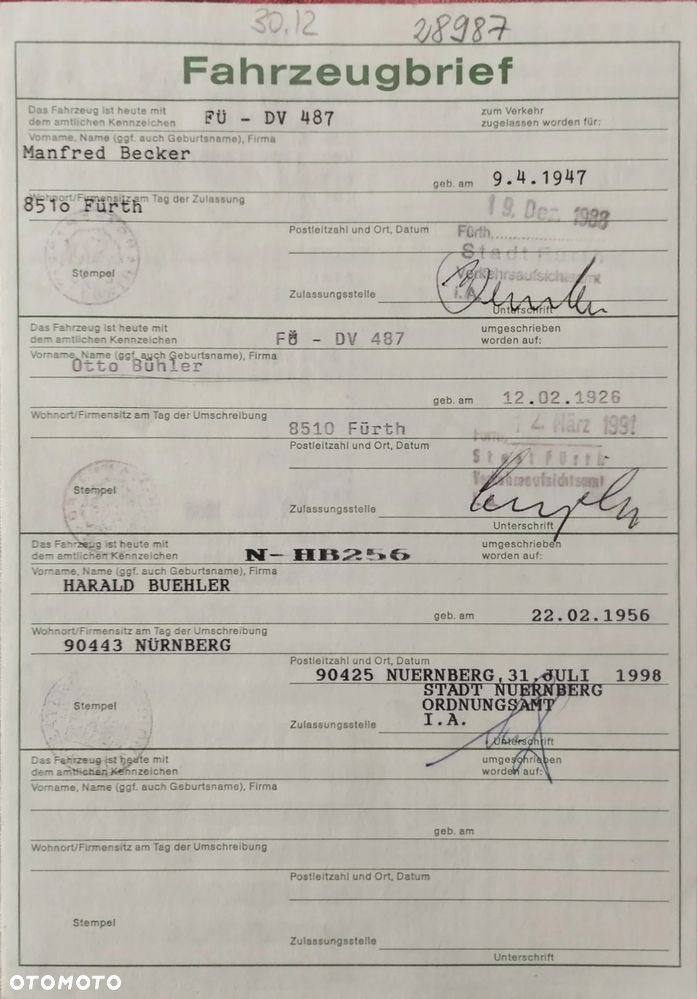 30.12 28987
Fahrzeugbrief
Das Fahrzeug ist heute mit
dem amtlichen Kennzeichen FÜ - DV 487 zum Verkehr
zugelassen worden für:
Vorname, Name (ggf. auch Geburtsname), Firma
Manfred Becker
geb. am 9.4.1947
Wohnort/Firmensitz am Tag der Zulassung
851o Fürth
19. Dez. 1988
Postleitzahl und Ort, Datum Fürth,
Stadt Fürth
Stempel Verkehrsaufsichtsamt
Zulassungsstelle I.A.
Unterschrift
Das Fahrzeug ist heute mit
dem amtlichen Kennzeichen FÜ - DV 487 umgeschrieben
worden auf:
Vorname, Name (ggf. auch Geburtsname), Firma
Otto Bühler
geb. am 12.02.1926
Wohnort/Firmensitz am Tag der Umschreibung
8510 Fürth
14. März 1991
Postleitzahl und Ort, Datum
Stadt Fürth
Stempel Verkehrsaufsichtsamt
Zulassungsstelle
Unterschrift
Das Fahrzeug ist heute mit
dem amtlichen Kennzeichen N-HB256 umgeschrieben
worden auf:
Vorname, Name (ggf. auch Geburtsname), Firma
HARALD BUEHLER
geb. am 22.02.1956
Wohnort/Firmensitz am Tag der Umschreibung
90443 NÜRNBERG
Postleitzahl und Ort, Datum
90425 NUERNBERG, 31.JULI 1998
STADT NUERNBERG
Stempel ORDNUNGSAMT
Zulassungsstelle I.A.
Unterschrift
Das Fahrzeug ist heute mit
dem amtlichen Kennzeichen umgeschrieben
worden auf:
Vorname, Name (ggf. auch Geburtsname), Firma
geb. am
Wohnort/Firmensitz am Tag der Umschreibung
Postleitzahl und Ort, Datum
Stempel
Zulassungsstelle
Unterschrift
OTOMOTO